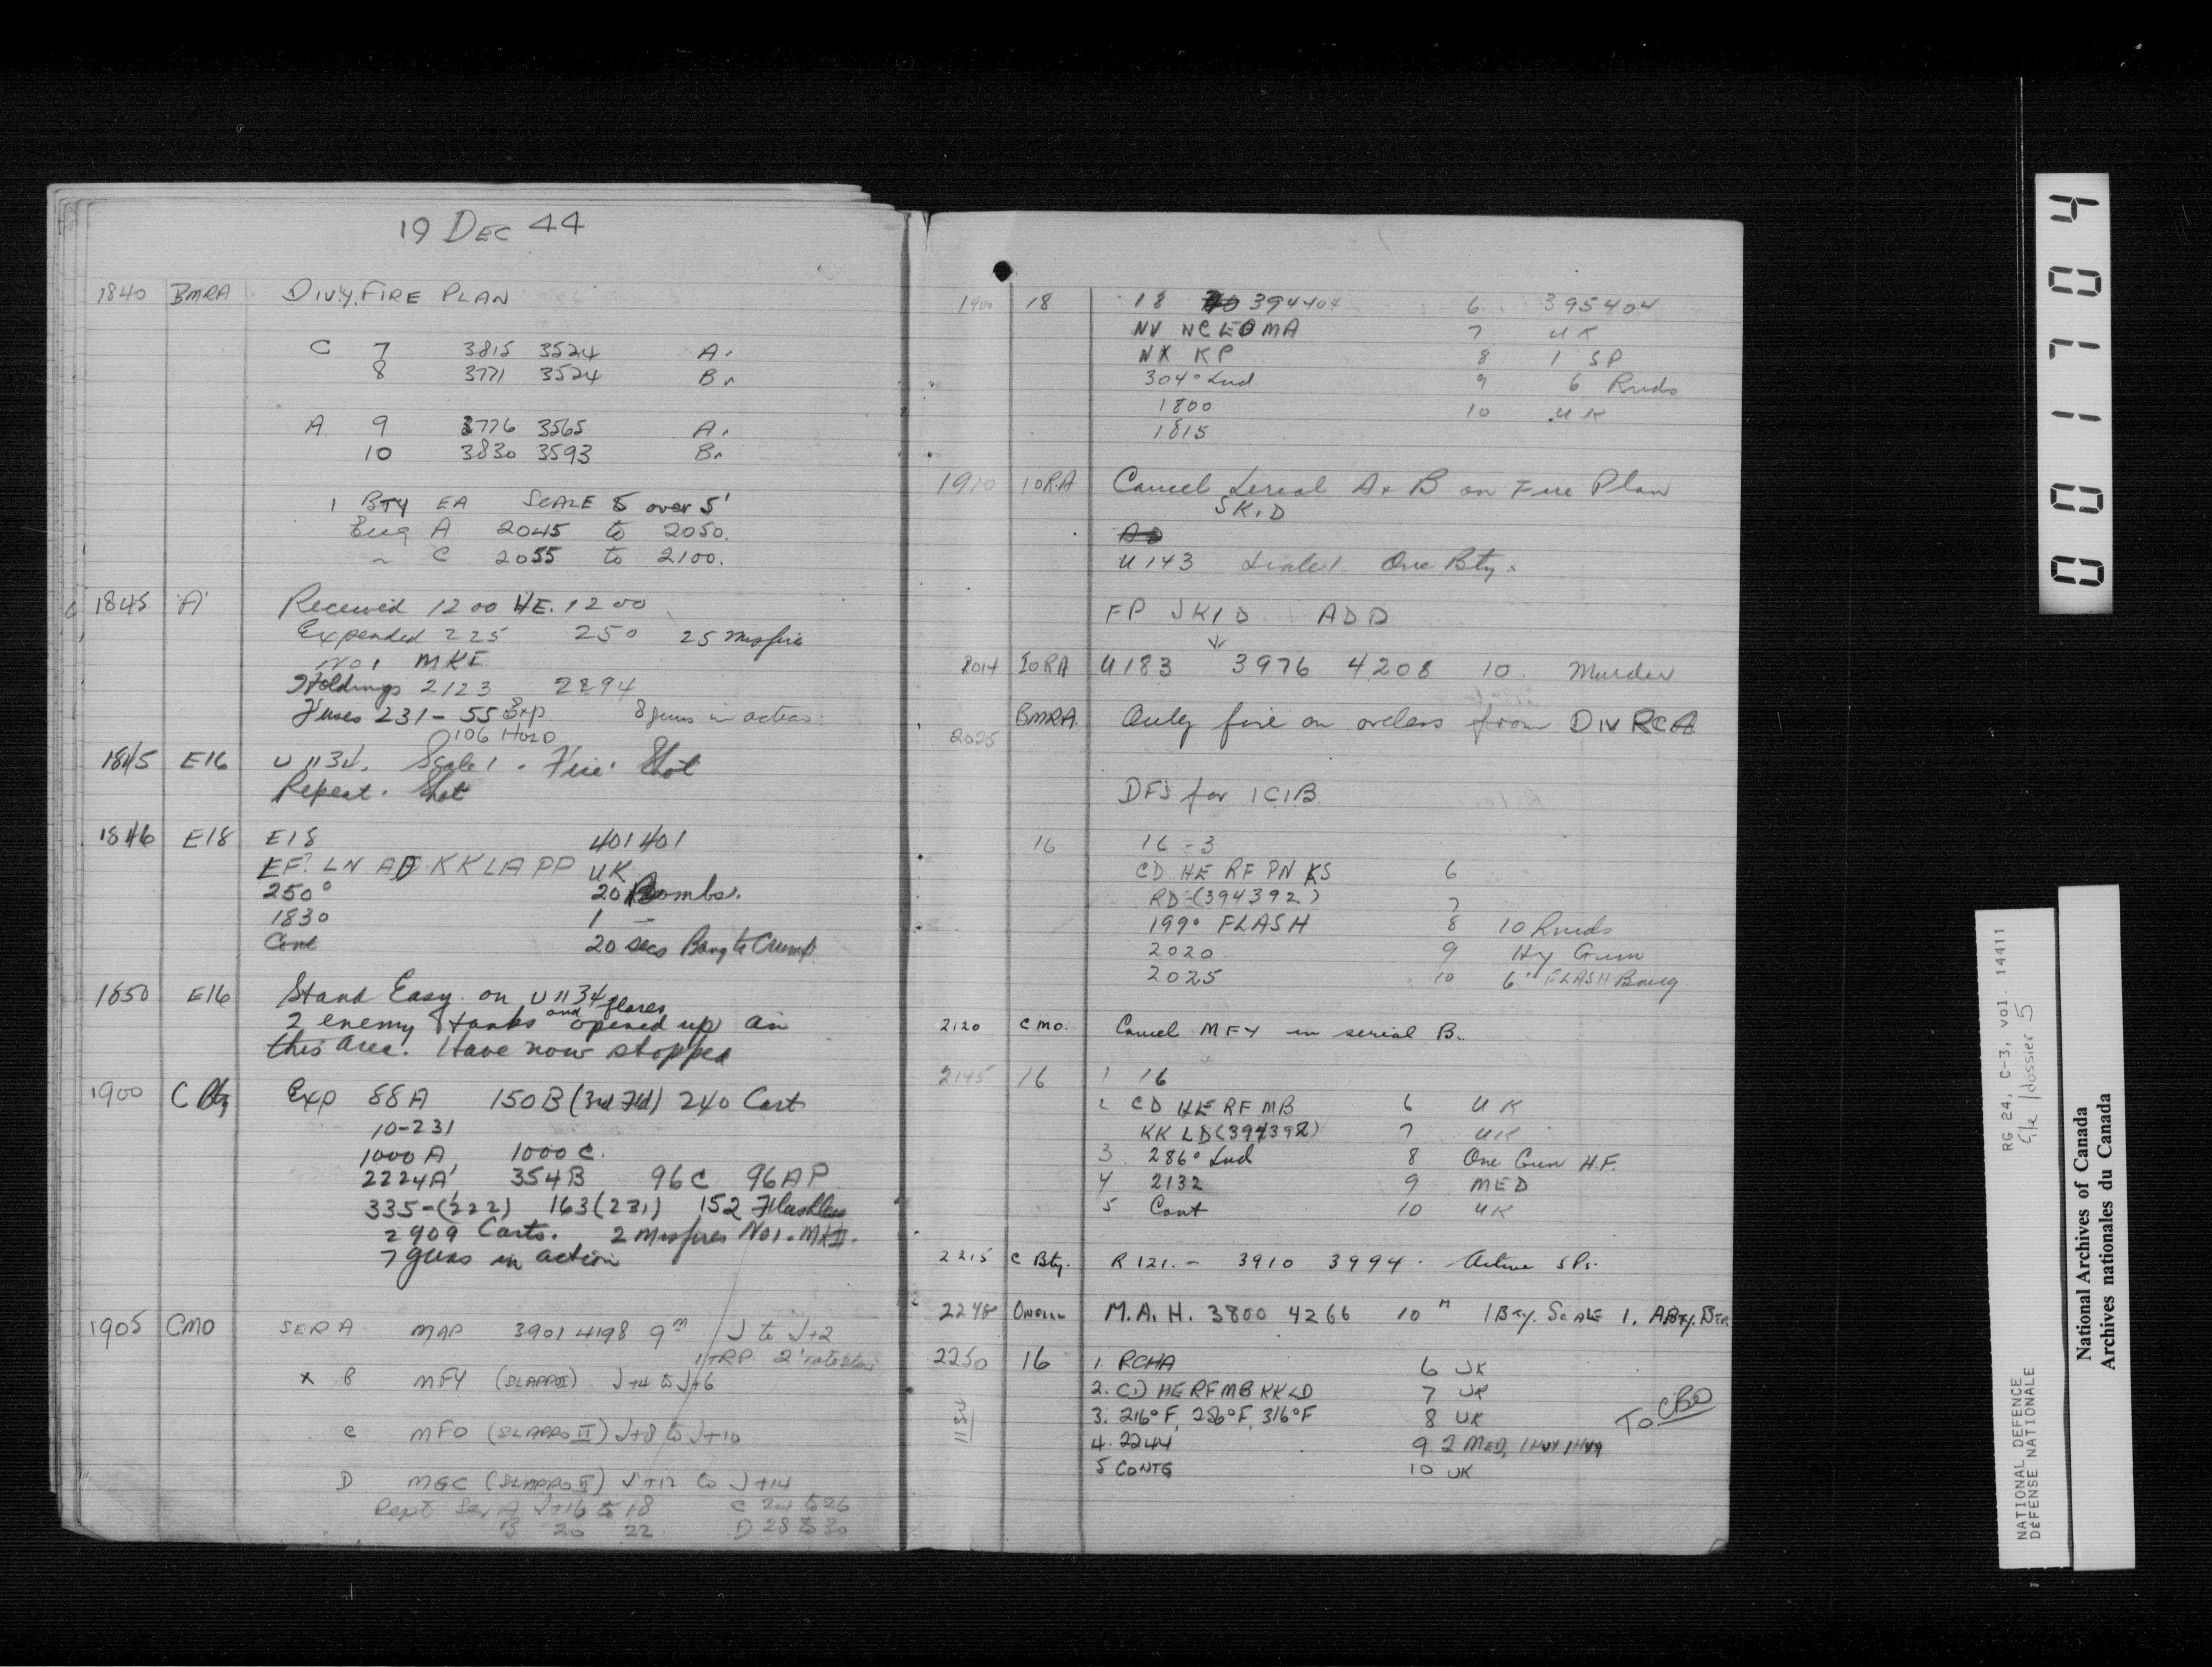 19 DEC 44
1840 BMRA DIV'Y. FIRE PLAN
C 7 3815 3524 A.
8 3771 3524 B
A 9 3776 3565 A.
10 3830 3593 B
1 BTY EA SCALE 5 over 5'
A 2045 to 2050.
" C 2055 to 2100.
1845 'A' Received 1200 HE. 1200
Expended 225 250 25 misfire
No 1 MKI
Holdings 2123 2294
Fuses 231 - 55 Exp 8 guns in action
106 HOLD
1845 E16 U 1134. Scale 1. Fire. Shot
Repeat. Shot
1846 E18 E18 401401
EF. LN AD KKLAPP UK
250° 20 Bombs.
1830 1
Cont 20 secs Bang to Crump
1850 E16 Stand Easy on U1134
2 enemy tanks and flares opened up in
this area. Have now stopped
1900 C Bty Exp 88A 150B (3rd Fld) 240 Cart
10-231
1000 A 1000 C.
2224A' 354B 96C 96AP
335-(222) 163(231) 152 Flashless
2909 Carts. 2 misfires No1. MKII.
7 guns in action
1905 CMO SER A MAP 3901 4198 9m J to J+2
1 TRP 2'
x B MFY (SLAPPO II) J+4 to J+6
C MFO (SLAPPO II) J+8 to J+10
D MGC (SLAPPO II) J+12 to J+14
Rept Ser A J+16 to 18 C 24 to 26
B 20 22 D 28 to 30
1900 18 18 394404 6 395404
NV NCLOMA 7 UK
NX KP 8 1 SP
304° Snd 9 6 Rnds
1800 10 UK
1815
1910 IORA Cancel Serial A & B on Fire Plan
SKID
U 143 Scale 1. One Bty.
FP SKID ADD
2014 IORA U183 3976 4208 10. Murder
BMRA. Only fire on orders from DIV RCA
2025
DFs for 1CIB.
16 16 - 3
CD HE RF PN KS 6
RD (394392) 7
199° FLASH 8 10 Rnds
2020 9 Hy Gun
2025 10 6" FLASH
2120 CMO. Cancel MFY in serial B.
2145 16 1 16
2 CD HE RF MB 6 UK
KK LD (394392) 7 UK
3 286° Snd 8 One Gun H.F.
4 2132 9 MED
5 Cont 10 UK
2215 C Bty. R 121. - 3910 3994. Active SPs.
2248 M.A.H. 3800 4266 10 m 1 Bty. SCALE 1. A Bty.
2250 16 1. RCHA 6 UK
2. CD HE RF MB KK LD 7 UK
3. 216°F, 256°F, 316°F 8 UK TO CBO
4. 2244 9. 2 MED, 1 HVY
5 CONTG 10 UK
1134
001704
NATIONAL DEFENCE RG 24, C-3, vol. 14411
DÉFENSE NATIONALE file/dossier 5
National Archives of Canada
Archives nationales du Canada